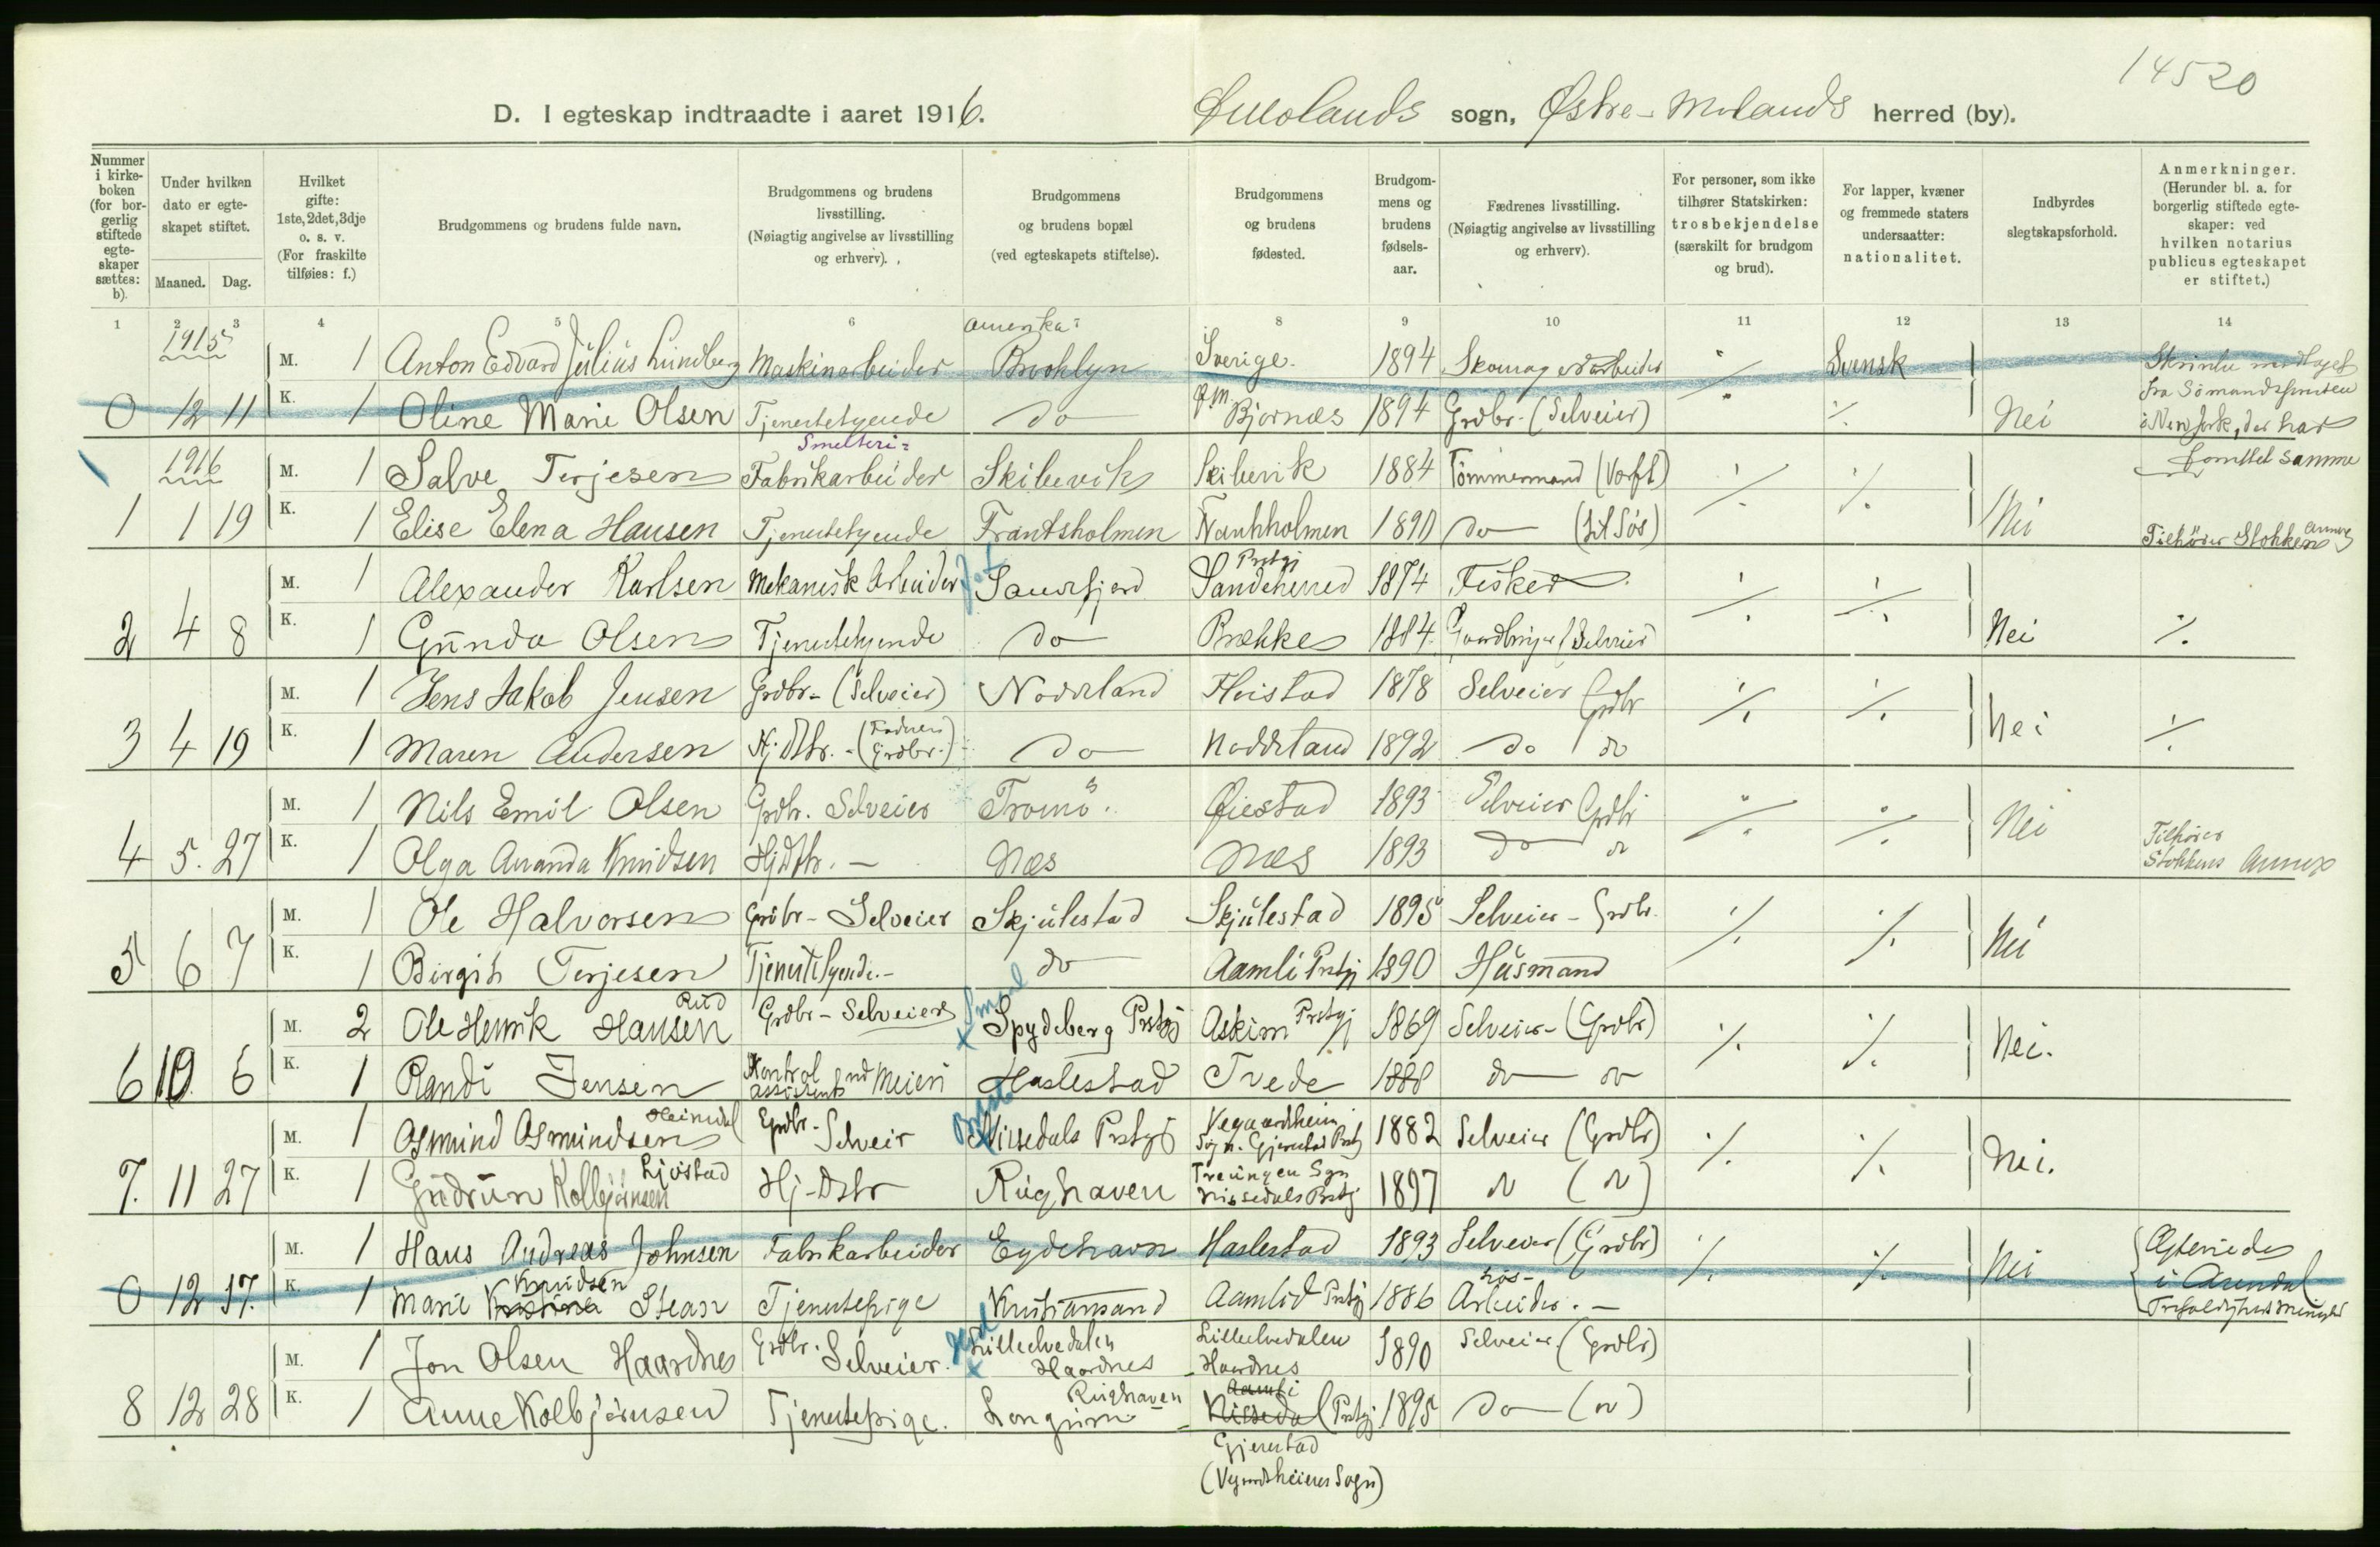 14520
D. I egteskap indtraadte i aaret 1916. Ømolands sogn, Østre-Molands herred (by).
Nummer i kirkeboken (for borgerlig stiftede egteskaper sættes: b).
Under hvilken dato er egteskapet stiftet.
Maaned. Dag.
Hvilket gifte: 1ste, 2det, 3dje o. s. v. (For fraskilte tilføies: f.)
Brudgommens og brudens fulde navn.
Brudgommens og brudens livsstilling. (Nøiagtig angivelse av livsstilling og erhverv).
Brudgommens og brudens bopæl (ved egteskapets stiftelse).
Brudgommens og brudens fødested.
Brudgommens og brudens fødselsaar.
Fædrenes livsstilling. (Nøiagtig angivelse av livsstilling og erhverv).
For personer, som ikke tilhører Statskirken: trosbekjendelse (særskilt for brudgom og brud).
For lapper, kvæner og fremmede staters undersaatter: nationalitet.
Indbyrdes slegtskapsforhold.
Anmerkninger. (Herunder bl. a. for borgerlig stiftede egteskaper: ved hvilken notarius publicus egteskapet er stiftet.)
1 2 3 4 5 6 8 9 10 11 12 13 14
1915 M. 1 Anton Edvard Julius Lundberg Maskinarbeider Amerika: Brooklyn Sverige. 1894 Skomagerarbeider ./. Svensk
0 12 11 K. 1 Oline Marie Olsen Tjenestetyende do Bjornes 1894 Grdbr. (Selveier) ./. Nei
fra Sömandskirken i New York, der har
samme
1916 M. 1 Salve Terjesen Smelteri= Fabrikarbeider Skibevik Skibevik 1884 Tömmermand (Værft) ./. ./.
1 1 19 K. 1 Elise Elena Hansen Tjenestetyende Frantsholmen 1890 do (til Sös) Nei Tilhörer Stokken Annex
M. 1 Alexander Karlsen Mekanisk Arbeider Sandefjord Sandeherred Prstgj 1874 Fisker ./. ./.
2 4 8 K. 1 Gunda Olsen Tjenestetyende do Brække 1884 Gaardbruger (Selveier) Nei ./.
M. 1 Jens Jakob Jensen Grdbr- (Selveier) Noddeland Flöistad 1878 Selveier Grdbr ./. ./.
3 4 19 K. 1 Maren Andersen Hj. Dtr. - (Faderen Grdbr.) do Noddeland 1892 do do Nei ./.
M. 1 Nils Emil Olsen Grdbr. Selveier Tromö. Øiestad 1893 Selveier Grdbr ./. ./.
4 5. 27 K. 1 Olga Amanda Knudsen Hjdtr. - Næs Næs 1893 do do Nei Tilhörer Stokken Annex
M. 1 Ole Halvorsen Grdbr - Selveier Skjulestad Skjulestad 1895 Selveier - Grdbr. ./. ./.
5 6 7 K. 1 Birgit Terjesen Tjenestetyende. - do Aamli Prstgj 1890 Husmand Nei
M. 2 Ole Henrik Hansen Rud Grdbr - Selveier x Spydeberg Prstgj Askim Prstgj 1869 Selveier - (Grdbr) ./. ./.
6 10. 6 K. 1 Randi Jensen Kontrol assistent ved Meieri Haslestad Tvede 1888 do do Nei.
M. 1 Asmund Asmundsen Heimdal Grdbr. - Selveir Nissedals Prstgj Vegaardsheien Sogn. Gjerestad Prstgj 1882 Selveier (Grdbr) ./. ./.
7. 11 27 K. 1 Gudrun Kolbjörnsen Ljöstad Hj-Dtr Rughaven Treungen Sgn Nissedals Prstgj 1897 do (do) Nei.
M. 1 Hans Andreas Johnsen Fabrikarbeider Eydehavn Haslestad 1893 Selveier (Grdbr) ./. ./.
0 12 17. K. 1 Marie Knudsen Stean Tjenestepige Kristiansand Aamlid Prstgj 1886 Lös- Arbeider. - Nei
i Arendal
M. 1 Jon Olsen Haardnes Grdbr. Selveier. x Lilleelvedalen Haardnes Lilleelvedalen Haardnes 1890 Selveier (Grdbr)
8 12 28 K. 1 Anne Kolbjörnsen Tjenestepige. Rughaven Longum Aamli Nissedal (Prstgj 1895 do (do)
Gjerestad
(Vegaardsheiens Sogn)